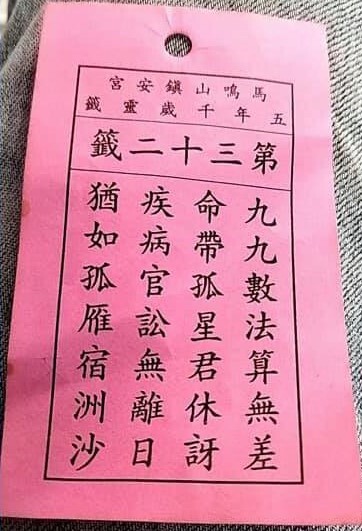 馬鳴山鎮安宮
五年千歲靈籤
第三十二籤
九九數法算無差
命帶孤星君休訝
疾病官訟無離日
猶如孤雁宿洲沙